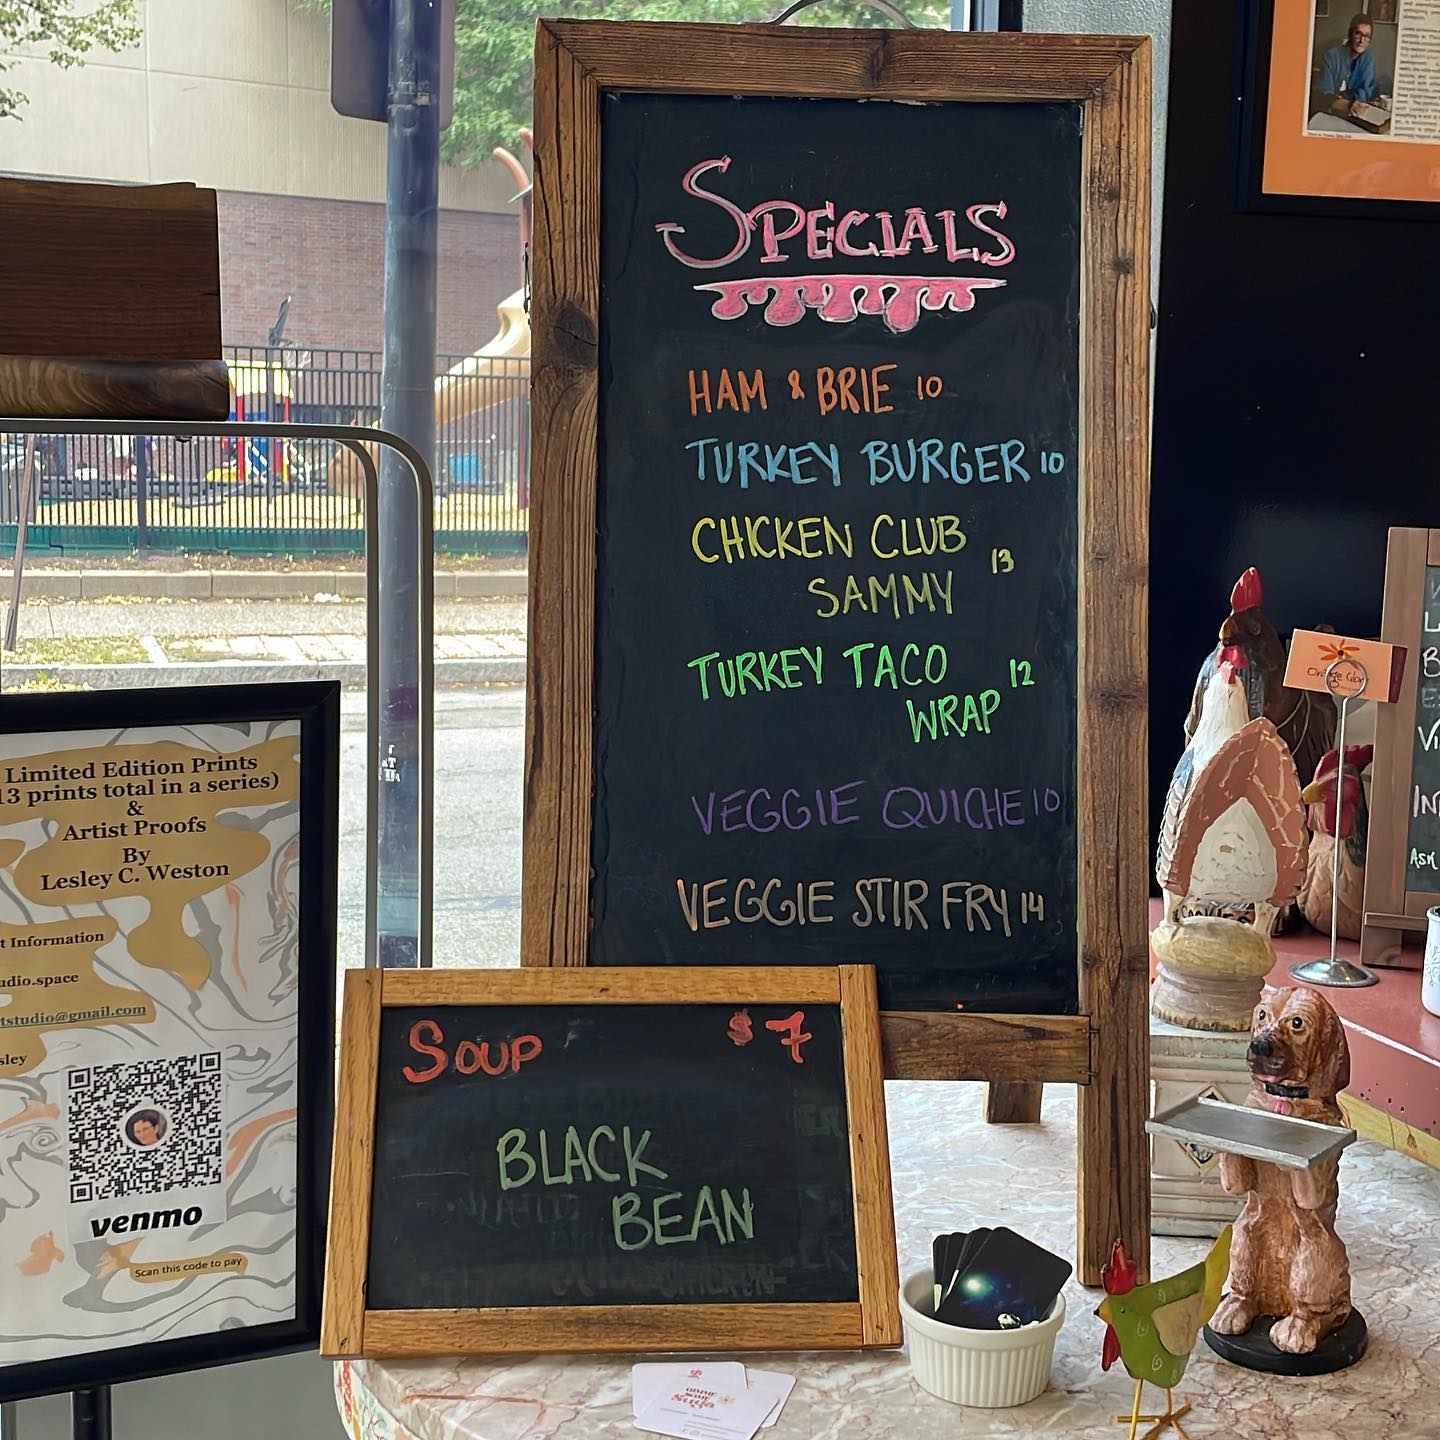 SPECIALS
HAM & BRIE 10
TURKEY BURGER 10
CHICKEN CLUB
SAMMY 13
TURKEY TACO
WRAP 12
VEGGIE QUICHE 10
VEGGIE STIR FRY 14
SOUP $7
BLACK
BEAN
Limited Edition Prints
13 prints total in a series)
&
Artist Proofs
By
Lesley C. Weston
t Information
udio.space
tstudio@gmail.com
sley
venmo
Scan this code to pay
COOKIES
ASK